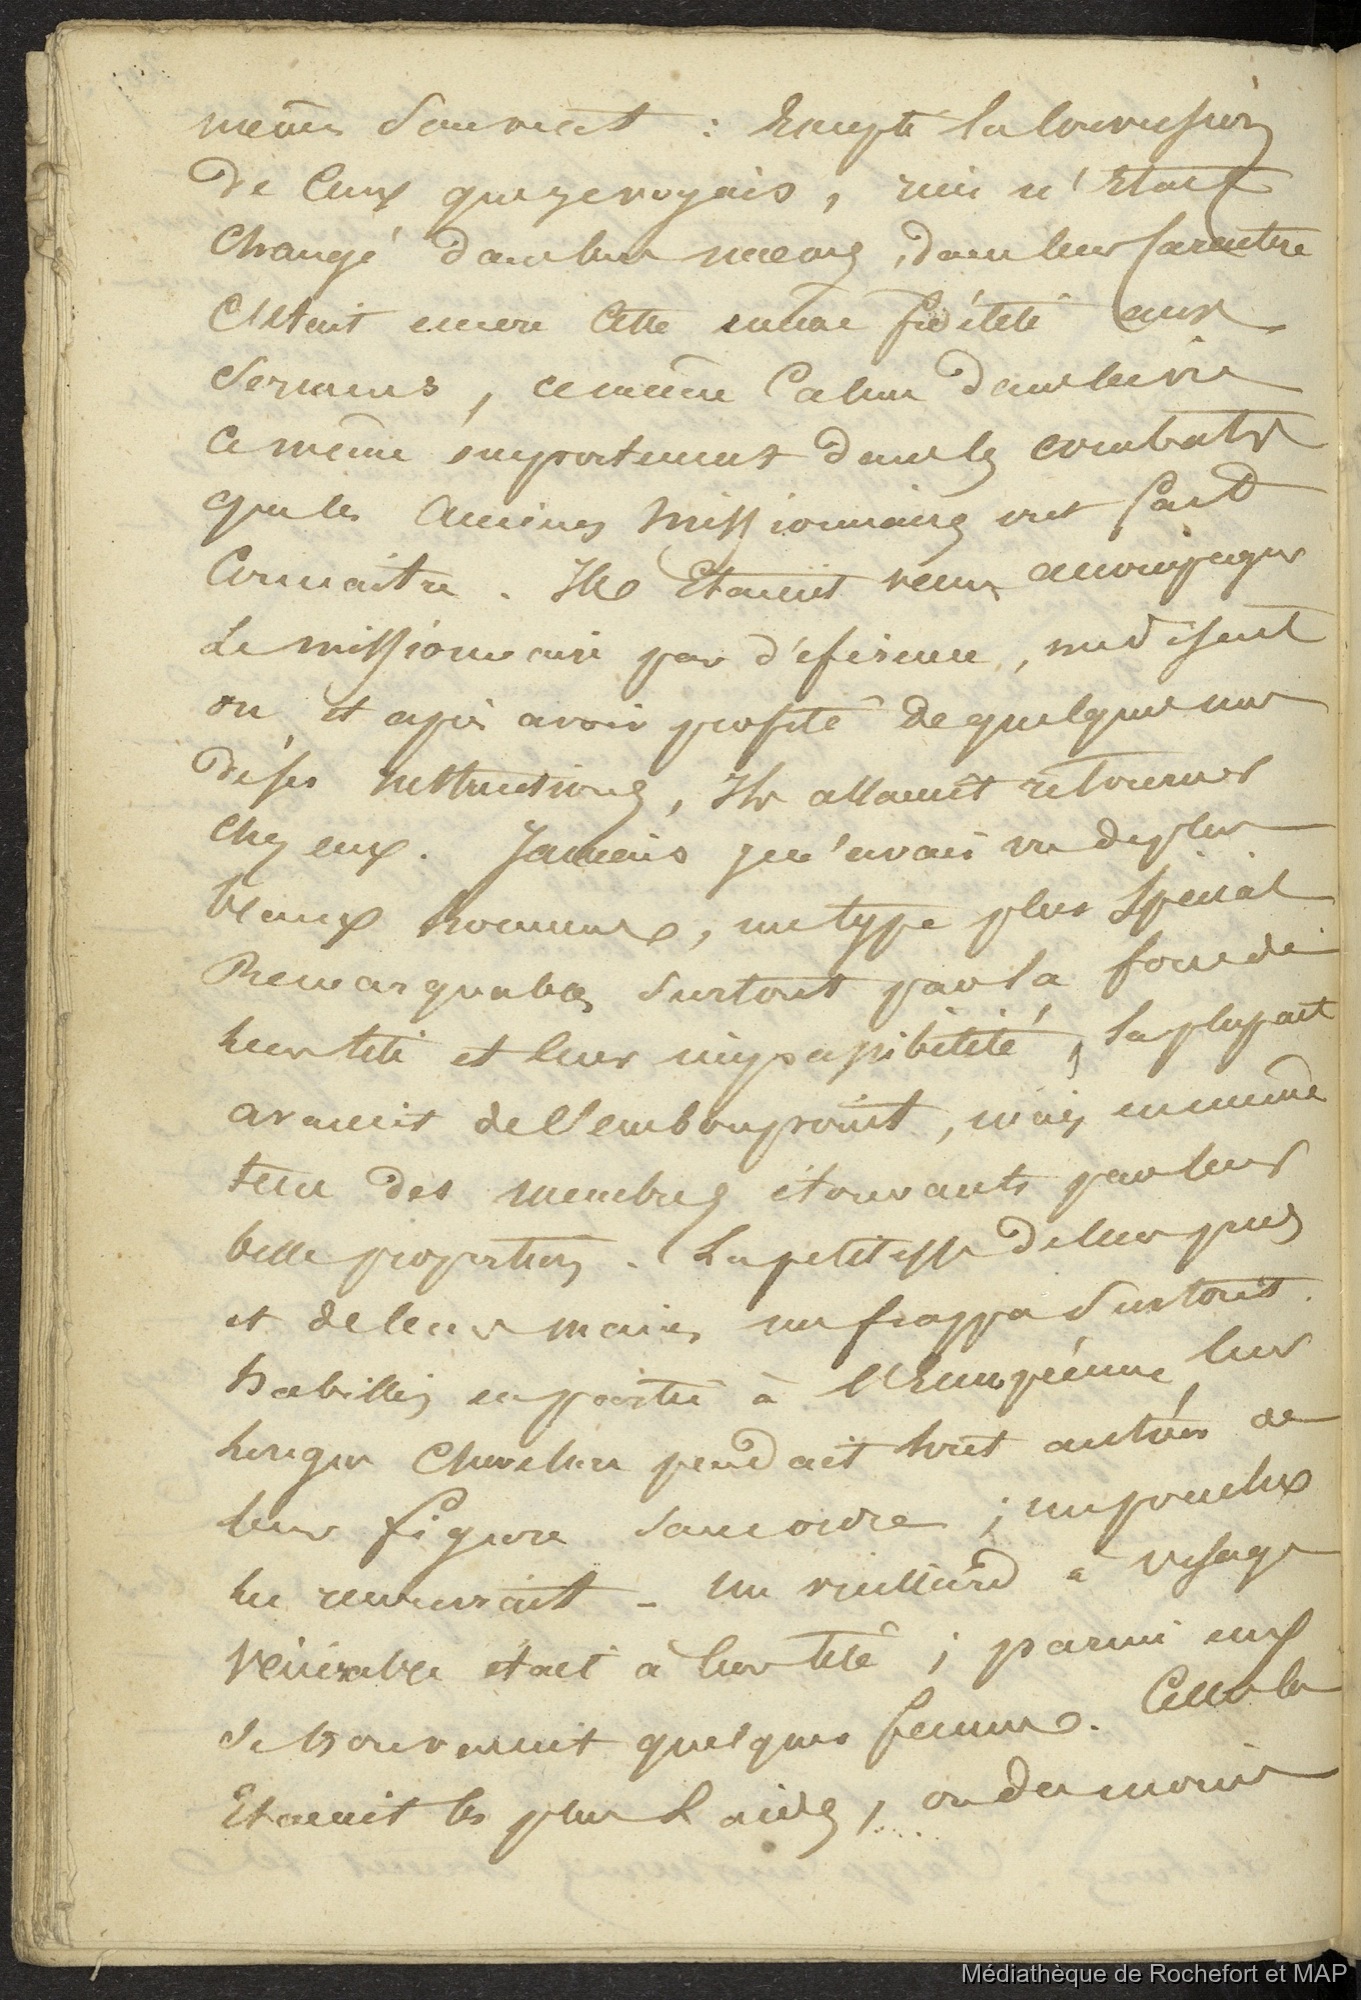 même souvent : Excepté la conversion
de ceux que je voyais, rien n'était
changé dans leurs mœurs, dans leur caractère
C'était encore cette même fidélité aux
Sermens, ce même calme dans la vie
ce même emportement dans les combats
que les Anciens missionnaires ont fait
Connaitre. Ils Etaient venus accompagner
Le missionnaire par déférence, me disent
on, et après avoir profité de quelques unes
de ses instructions, Ils allaient retourner
chez eux. Jamais je n'avais vu de plus
beaux hommes, un type plus spécial
Remarquables surtout par la force de
leur tête et leur impassibilité, la plupart
avaient de l'embonpoint, mais en même
tems des membres étonnants par leur
belle proportion. La petitesse de leurs pieds
et de leurs mains me frappa surtout.
habillés en partie à l'Européenne, leur
longue chevelure pendait tout autour de
leur figure sans ordre ; un poncho
les recouvrait - Un vieillard à visage
vénérable était à leur tête ; parmi eux
se trouvaient quelques femmes. Celles là
Etaient les plus laides, ou du moins
Médiathèque de Rochefort et MAP